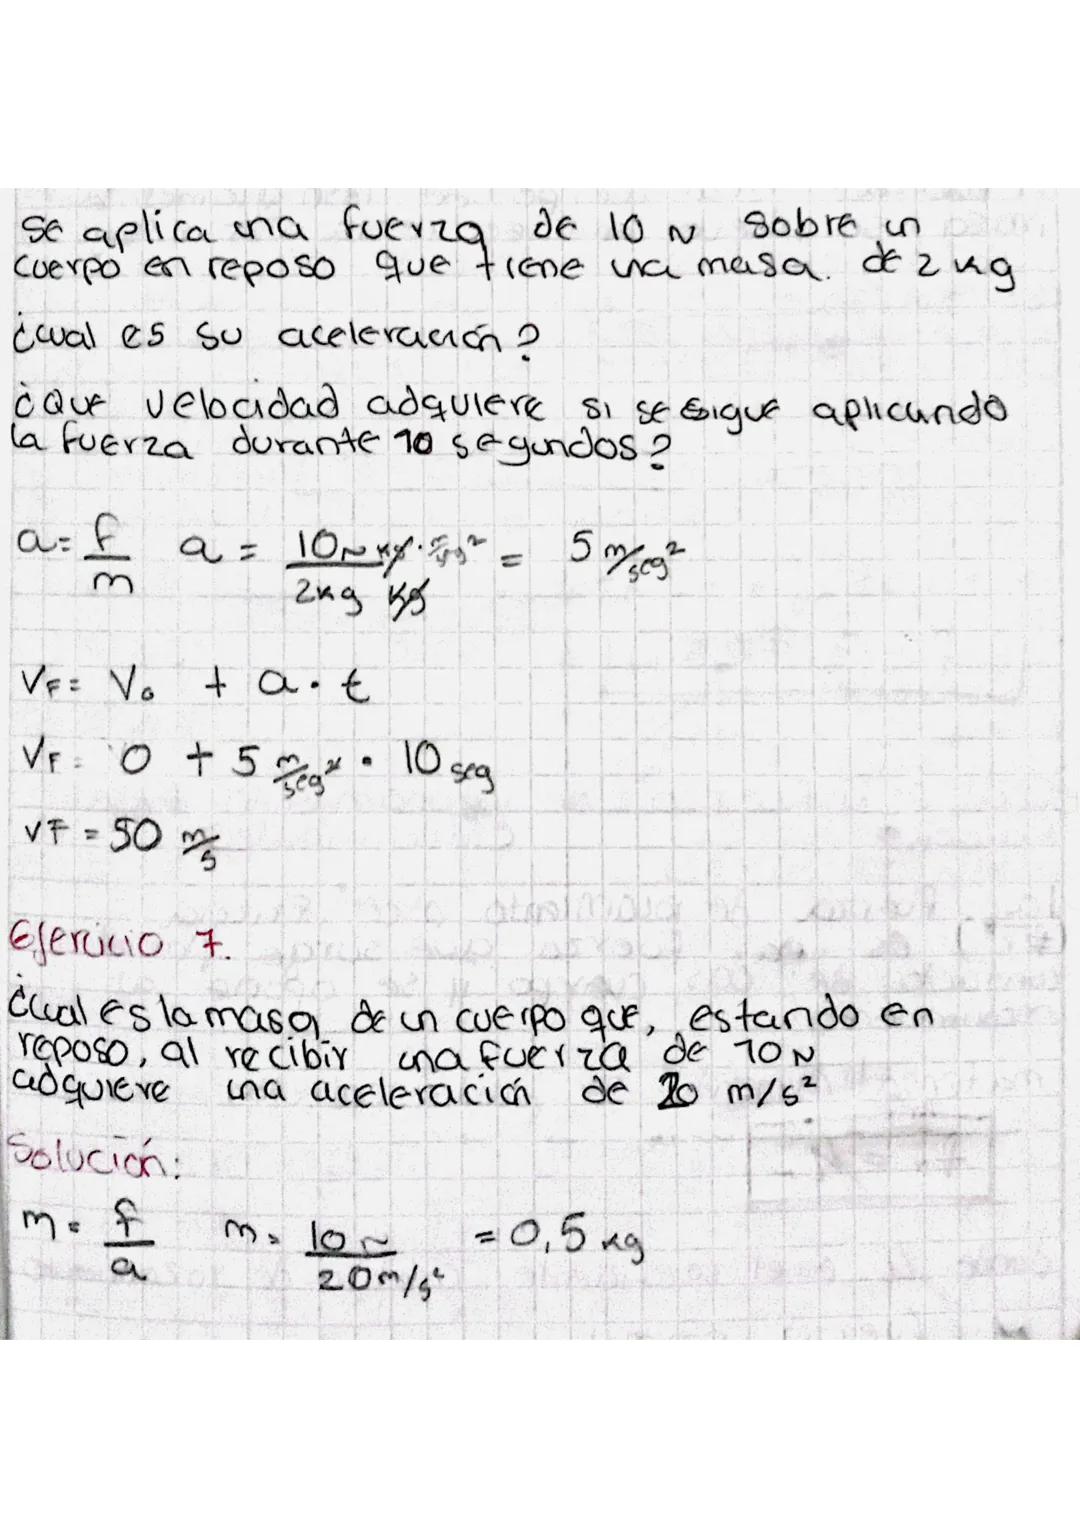 se aplica una fuerza de 10 N sobre un
cuerpo en reposo que tiene una masa. de 2 kg
¿cual es su aceleración?
¿Que velocidad adquiere si se sigue aplicando
la fuerza durante 10 segundos?
a = f/m a = 10N kg · m/seg² / 2kg kg = 5 m/seg²
VF = Vo + a · t
VF = 0 + 5 m/seg² · 10 seg
VF = 50 m/s
Ejercicio 7.
¿Cual es la masa de un cuerpo que, estando en
reposo, al recibir una fuerza de 10 N
adquiere una aceleración de 20 m/s²
Solución:
m = f/a m = 10N / 20m/s² = 0,5 kg